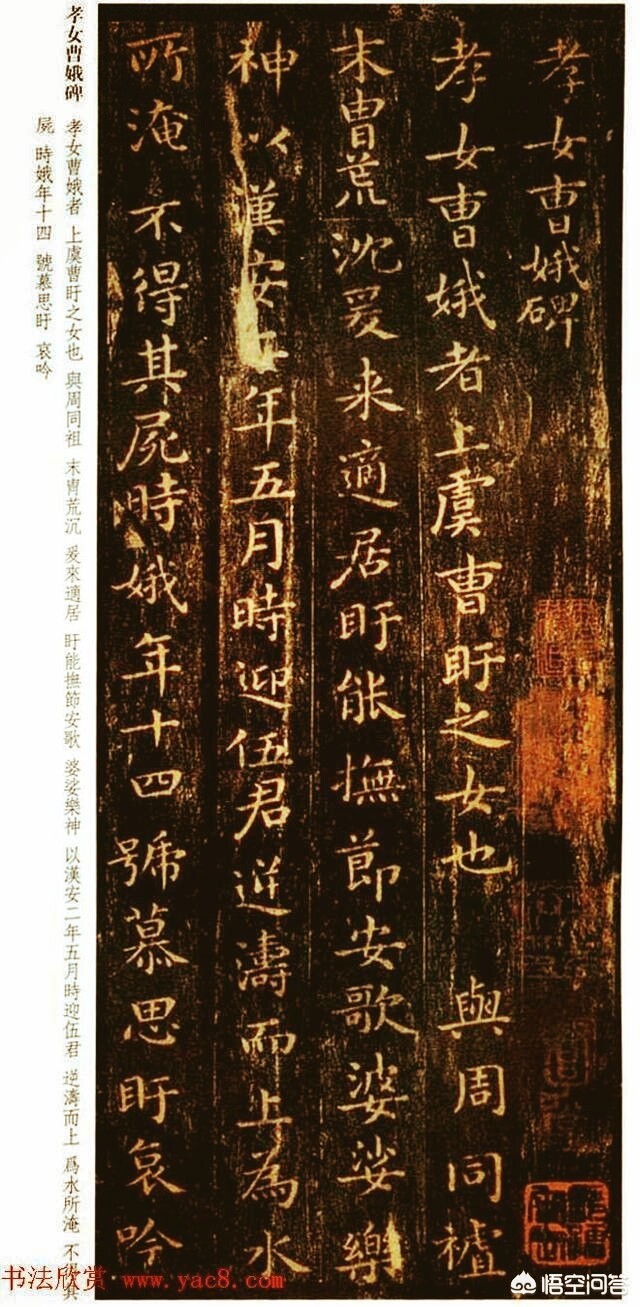 孝女曹娥碑
孝女曹娥者上虞曹盱之女也 與周同祖
末胄荒沈爰来適居盱能撫節安歌婆娑樂
神以漢安二年五月時迎伍君逆濤而上為水
所淹 不得其屍時娥年十四號慕思盱哀吟
孝女曹娥碑
孝女曹娥者 上虞曹盱之女也 與周同祖 末胄荒沉 爰來適居 盱能撫節安歌 婆娑樂神 以漢安二年五月時迎伍君 逆濤而上 爲水所淹 不得其
屍 時娥年十四 號慕思盱 哀吟
书法欣赏 www.yac8.com
悟空问答